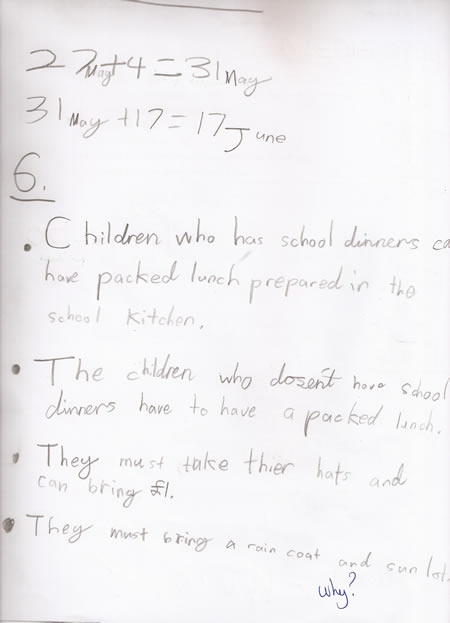 27May+4=31May
31May+17=17June
6.
• Children who has school dinners ca
have packed lunch prepared in the
school kitchen.
• The children who dosen't have school
dinners have to have a packed lunch.
• They must take thier hats and
can bring £1.
• They must bring a rain coat and sun lot.
why?